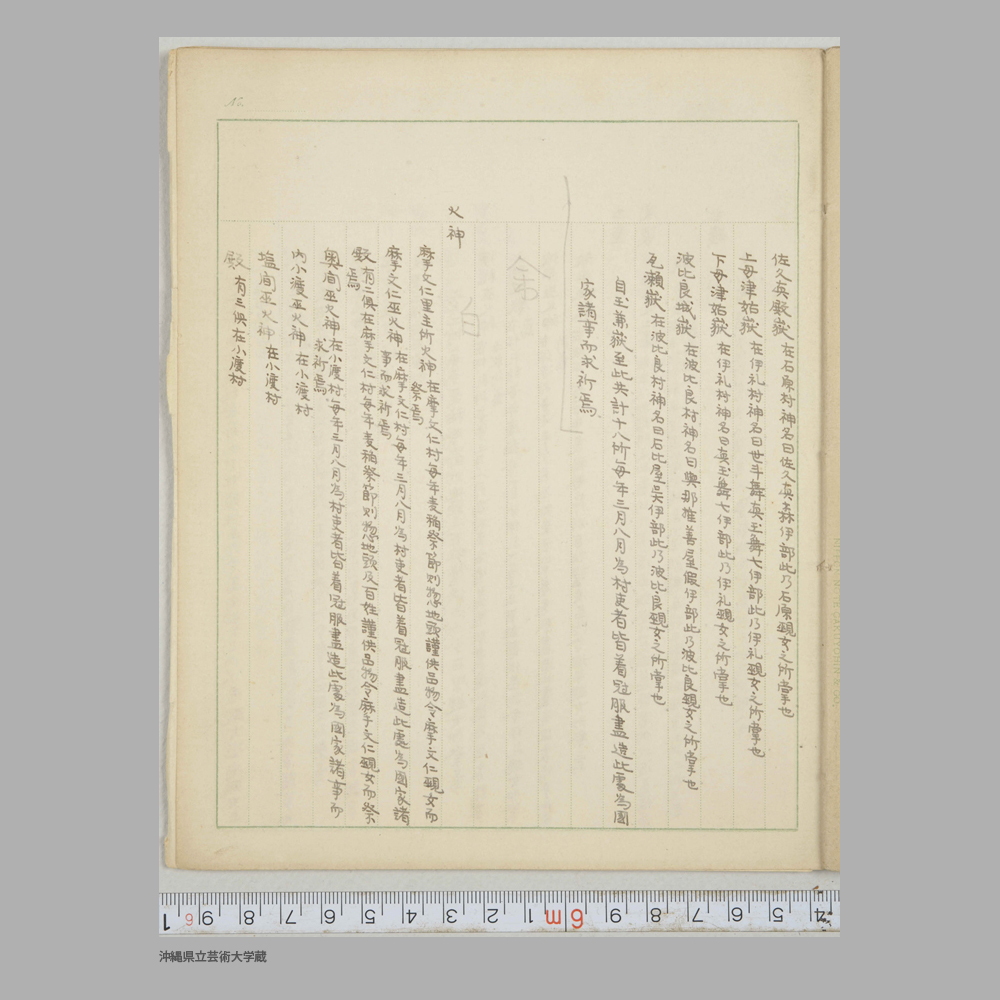 佐久真殿嶽 在石原村神名曰佐久真森伊部此乃石原覡女之所掌也
上母津姑嶽 在伊礼村神名曰世斗舞真玉舞七伊部此乃伊礼覡女之所掌也
下母津姑嶽 在伊礼村神名曰真玉舞七伊部此乃伊礼覡女之所掌也
波比良城嶽 在波比良村神名曰與那推善屋假伊部此乃波比良覡女之所掌也
瀬嶽 在波比良村神名曰石比屋吴伊部此乃波比良覡女之所掌也
自玉嶽至此共計十八所毎年三月八月為村吏者皆着冠服盡造此處為國
家諸事而求祈焉
余白
火神
摩文仁里主所火神 在摩文仁村毎年麦稲祭節則惣地頭謹供品物令摩文仁覡女而
祭焉
摩文仁巫火神 在摩文仁村毎年三月八月為村吏者皆着冠服盡造此處為國家諸
事而求祈焉
殿 有二俱在摩文仁村毎年麦稲祭節則惣地頭及百姓謹供品物令摩文仁覡女而祭
焉
奥間巫火神 在小渡村毎年三月八月為村吏者皆着冠服盡造此處為國家諸事而
求祈焉
内小渡巫火神 在小渡村
塩間巫火神 在小渡村
殿 有三俱在小渡村
No.
1 6 9 8 7 6 5 4 3 2 1 6m 9 8 7 6 5 4
沖縄県立芸術大学蔵